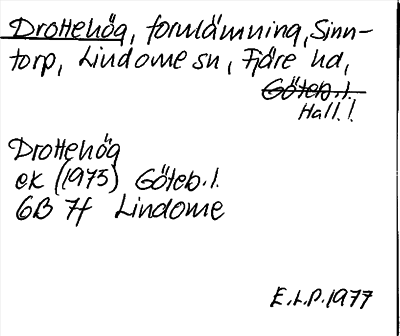 Drottehög, fornlämning, Sinn-
torp, Lindome sn, Fjäre hd,
Göteb.l.
Hall.l.
Drottehög
ek (1975) Göteb.l.
6B 7f Lindome
E.L.P.1977